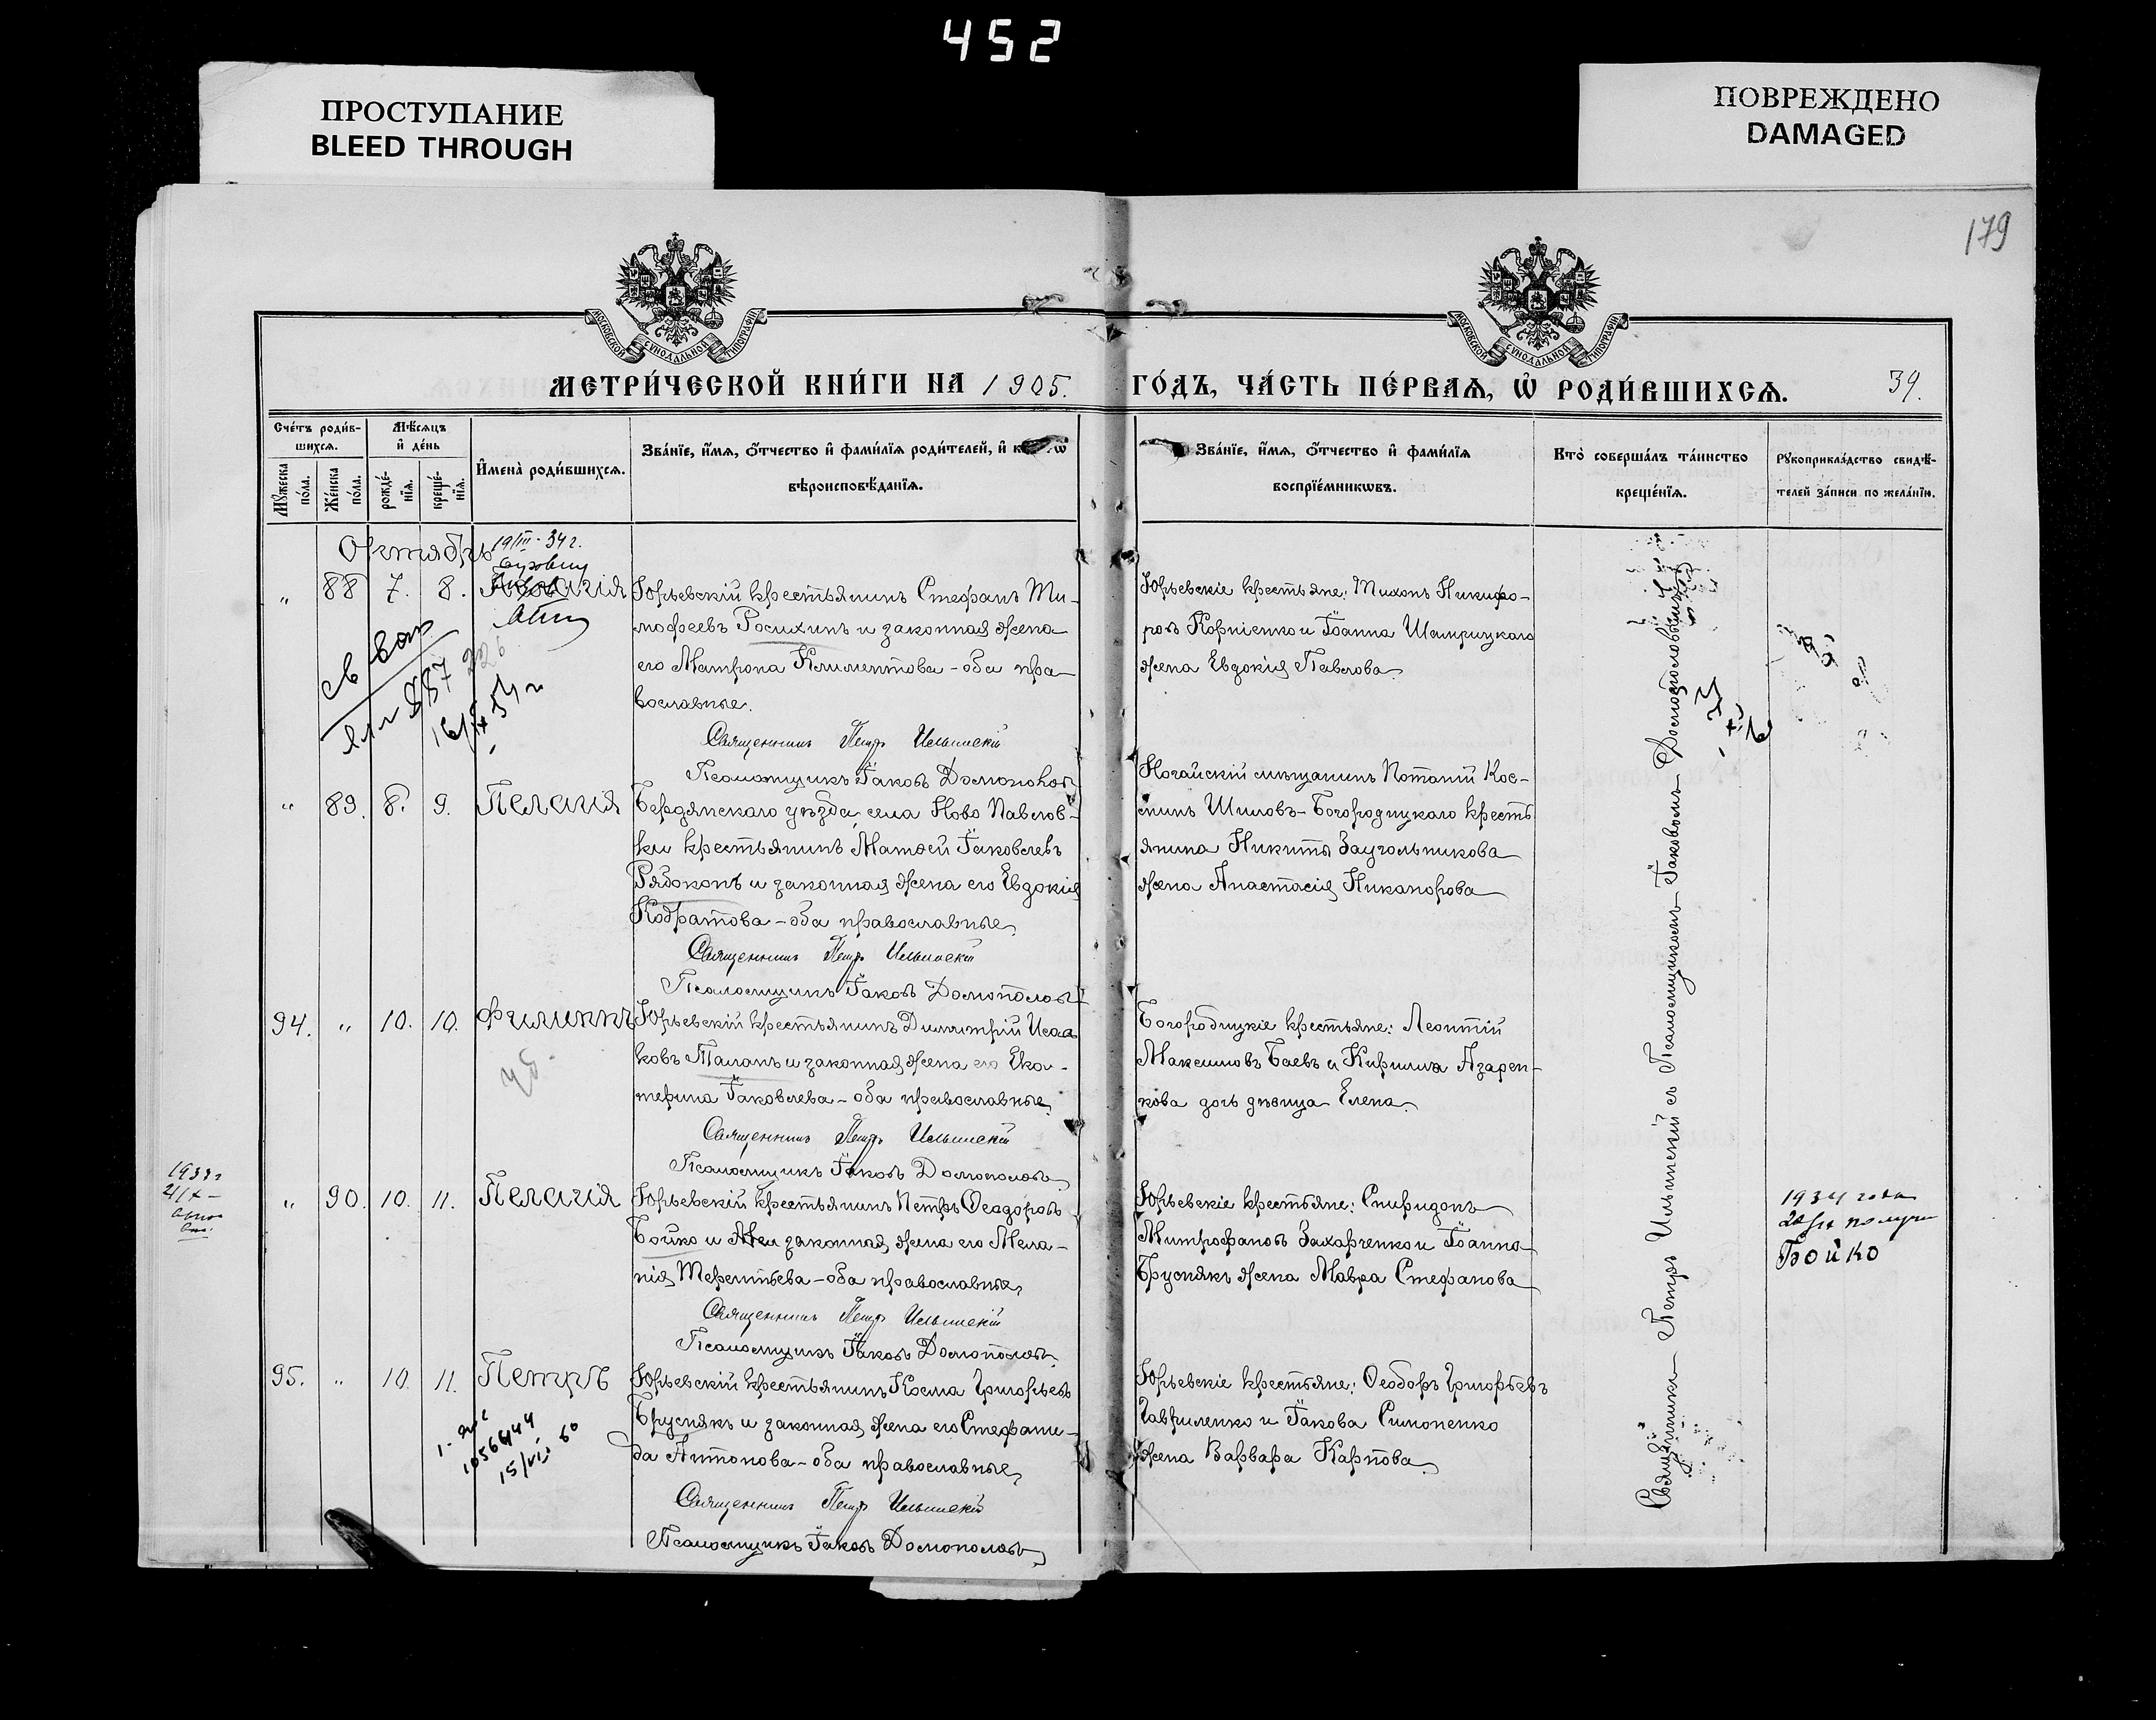 452
ПРОСТУПАНИЕ
BLEED THROUGH
ПОВРЕЖДЕНО
DAMAGED
179
МОСКОВСКОЙ СѴНОДАЛЬНОЙ ТИПОГРАФІИ
МОСКОВСКОЙ СѴНОДАЛЬНОЙ ТИПОГРАФІИ
МЕТРИ́ЧЕСКОЙ КНИ́ГИ НА 1905.
ГО́ДЪ, ЧА́СТЬ ПЕ́РВАѦ, Ѡ҆ РОДИ́ВШИХСѦ. 39.
Сче́тъ роди́в-
шихсѧ.
Мѣ́сѧцъ
и҆ де́нь
Мꙋ́жеска по́ла.
Же́нска по́ла.
рожде́-
нїѧ.
креще́-
нїѧ.
И҆мена̀ роди́вшихсѧ.
Зва́нїе, и҆́мѧ, ѻ҆́тчество и҆ фами́лїѧ роди́телей, и҆
вѣроисповѣ́данїѧ.
Зва́нїе, и҆́мѧ, ѻ҆́тчество и҆ фами́лїѧ
воспрїе́мникѡвъ.
Кто̀ соверша́лъ та́инство
креще́нїѧ.
Рꙋкоприкла́дство свидѣ́-
телей за́писи по жела́нїю.
Октябрь
19/III-34 г.
„ 88 7. 8.
Юрьевскій крестьянинъ Стефанъ Ти-
мофеевъ Росихинъ и законная жена
его Матрона Климентова - оба пра-
вославные.
Священникъ Петръ Ильинскій
Псаломщикъ Іаковъ Домополовъ
Юрьевскіе крестьяне: Тихонъ Никифо-
ровъ Корніенко и Іоанна Шамрицкаго
жена Евдокія Павлова
„ 89. 8. 9. Пелагія
Бердянскаго уѣзда, села Ново Павлов-
ки крестьянинъ Матѳей Іаковлевъ
Рябоконь и законная жена его Евдокія
Кодратова - оба православные,
Священникъ Петръ Ильинскій
Псаломщикъ Іаковъ Домополовъ
Ногайскій мѣщанинъ Потапій Кос-
минъ Шиловъ - Богородицкаго кресть
янина Никиты Заугольникова
жена Анастасія Никанорова
94. „ 10. 10. Филиппъ
Юрьевскій крестьянинъ Димитрій Исаа
ковъ Таланъ и законная жена его Ека-
терина Іаковлева - оба православные,
Священникъ Петръ Ильинскій
Псаломщикъ Іаковъ Домополовъ
Богородицкіе крестьяне: Леонтій
Максимовъ Баевъ и Кирилла Азарен-
кова дочь дѣвица Елена
„ 90. 10. 11. Пелагія
Юрьевскій крестьянинъ Петръ Ѳеодоровъ
Бойко и законная жена его Мела-
нія Терентьева - оба православные,
Священникъ Петръ Ильинскій
Псаломщикъ Іаковъ Домополовъ
Юрьевскіе крестьяне: Спиридонъ
Митрофановъ Захарченко и Іоанна
Бруснякъ жена Мавра Стефанова
1934 года
Бойко
95. „ 10. 11. Петръ
15/VII 60
Юрьевскій крестьянинъ Косма Григорьевъ
Бруснякъ и законная жена его Стефани-
да Антонова - оба православные,
Священникъ Петръ Ильинскій
Псаломщикъ Іаковъ Домополовъ
Юрьевскіе крестьяне: Ѳеодоръ Григорьевъ
Гавриленко и Іакова Симоненко
жена Варвара Карпова
Священникъ Петръ Ильинскій съ Псаломщикомъ Іаковомъ